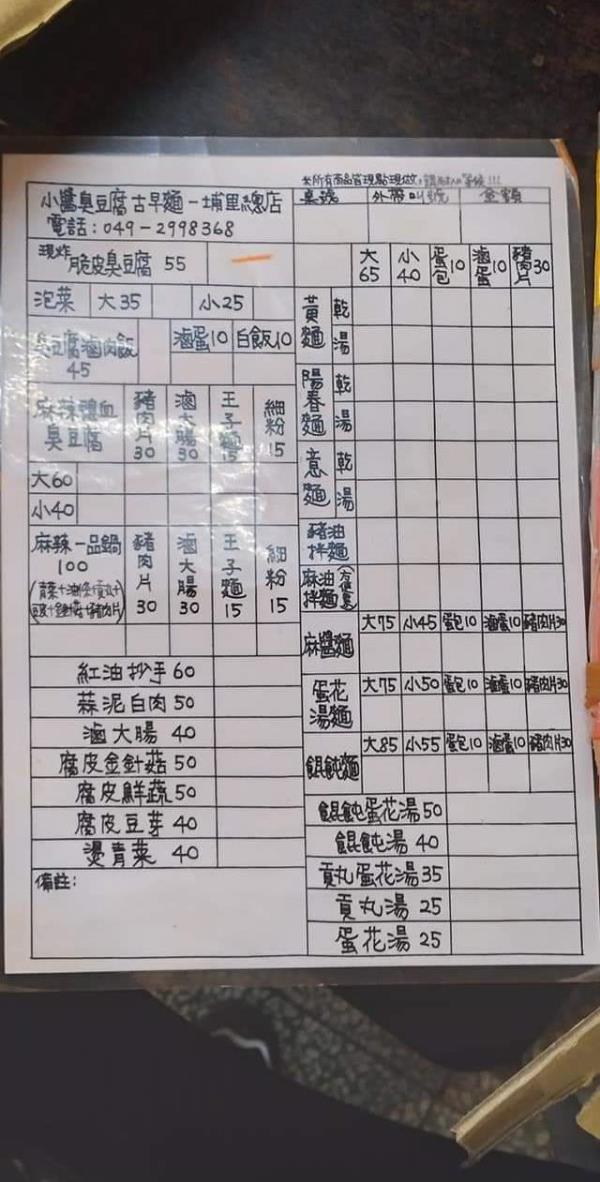 ※所有商品皆現點現做，請耐心等候!!!
小醬臭豆腐古早麵-埔里總店
電話:049-2998368
桌號 外帶叫號 金額
現炸脆皮臭豆腐 55
泡菜 大35 小25
臭豆腐滷肉飯 45 滷蛋10 白飯10
麻辣鴨血臭豆腐 豬肉片30 滷大腸30 王子麵15 細粉15
大60
小40
麻辣一品鍋 100 豬肉片30 滷大腸30 王子麵15 細粉15
紅油抄手 60
蒜泥白肉 50
滷大腸 40
腐皮金針菇 50
腐皮鮮蔬 50
腐皮豆芽 40
燙青菜 40
備註:
大65 小40 蛋包10 滷蛋10 豬肉片30
黃麵 乾 湯
陽春麵 乾 湯
意麵 乾 湯
豬油拌麵
麻油拌麵
麻醬麵 大75 小45 蛋包10 滷蛋10 豬肉片30
蛋花湯麵 大75 小50 蛋包10 滷蛋10 豬肉片30
餛飩麵 大85 小55 蛋包10 滷蛋10 豬肉片30
餛飩蛋花湯 50
餛飩湯 40
貢丸蛋花湯 35
貢丸湯 25
蛋花湯 25